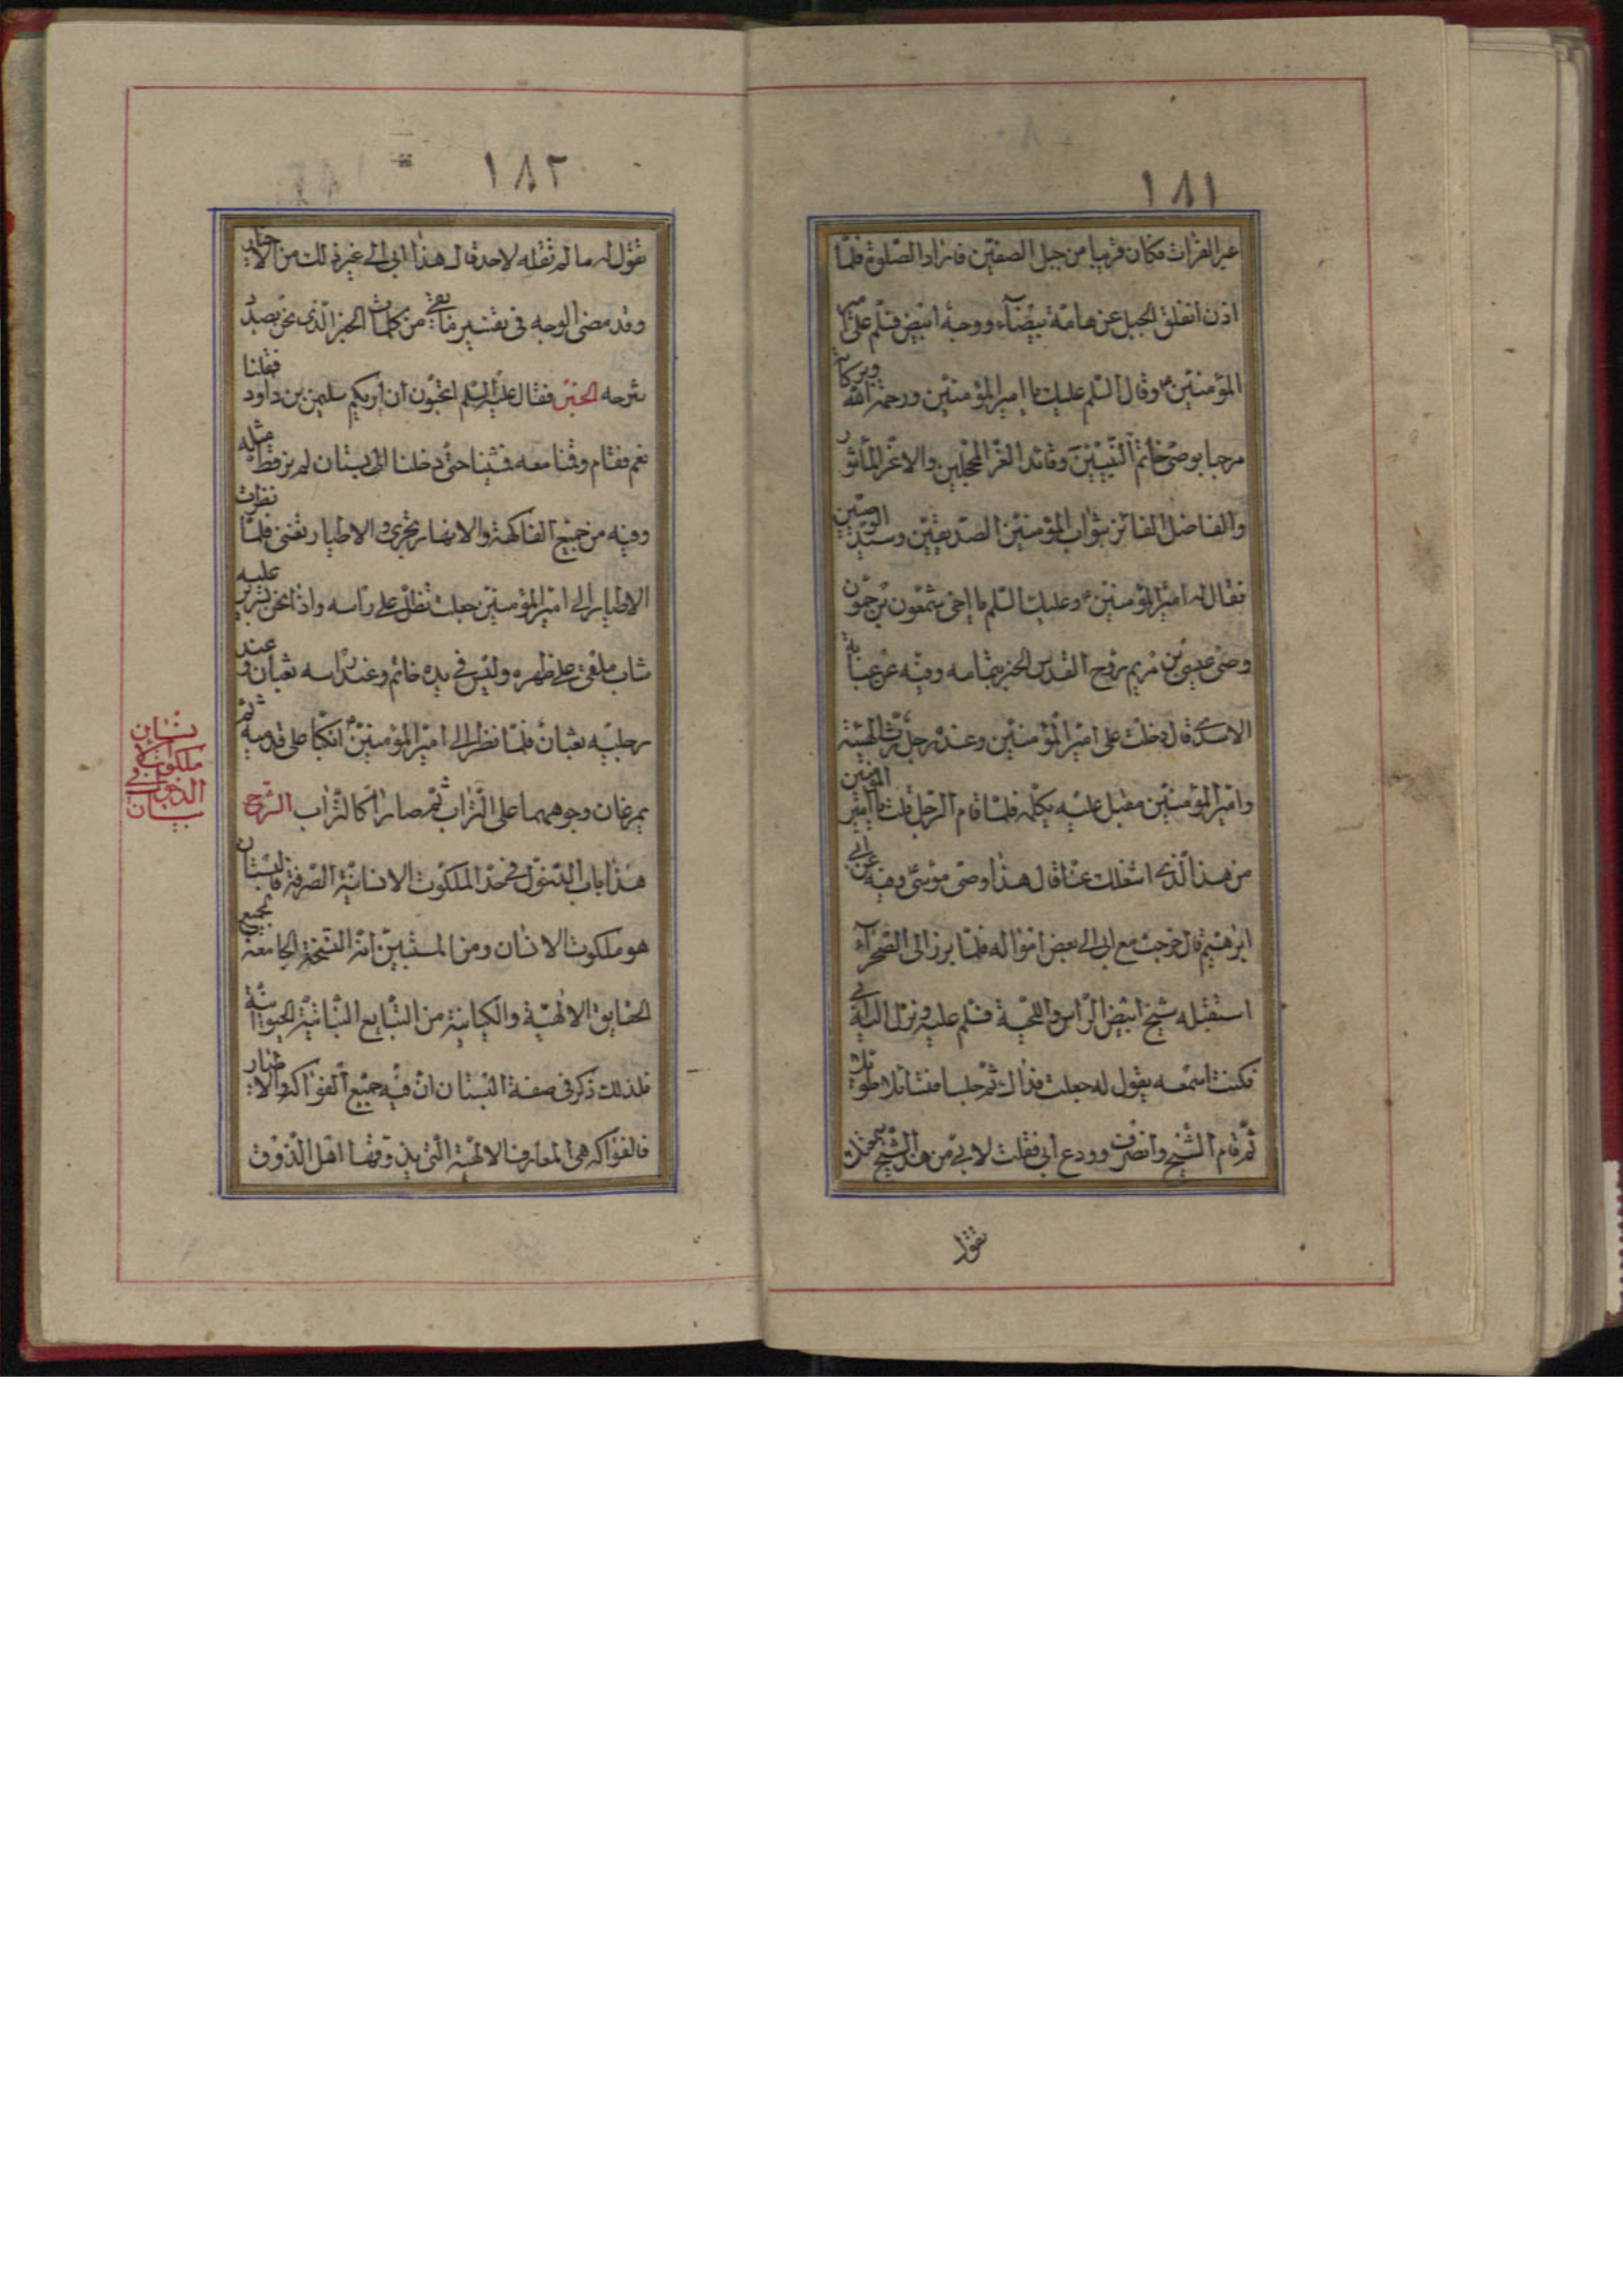 ١٨١
عبر الفرات فكان قريبا من جبل الصفين فاراد الصلوة فلمّا
اذن انفلق الجبل عن هامة بيضآء ووجه ابيض فسلّم على امير
المؤمنين ؏ وقال السّلم عليك يا امير المؤمنين ورحمة الله وبركاته
مرحبا بوصى خاتم النّبيّين وقائد الغرّ المحجلين والاغرّ المأثور
والفاضل الفائز بثواب المؤمنين الصدّيقين وسيّد الوصيّين
فقال له امير المؤمنين ؏ وعليك السّلم يا اخى شمعون بن حمون
وصى عيسى بن مريم روح القدس الخبر بتمامه وفيه عن عباية
الاسدى قال دخلت على امير المؤمنين وعنده رجل رثّ الهيئة
وامير المؤمنين مقبل عليه يكلّمه فلمّا قام الرّجل قلت يا امير المؤمنين
من هذا الّذى اشغلك عنّا قال هذا وصى موسى وفيه عن ابى
ابرهيم قال خرجت مع ابى الى بعض امواله فلمّا برز الى الصّحرآء
استقبله شيخ ابيض الرّاس واللحية فسلّم عليه ونزل اليه ابى
فكنت اسمعه يقول له جعلت فداك ثمّ جلسا فتسائلا طويلا
ثمّ قام الشّيخ وانصرف وودع ابى فقلت لابى من هذا الشّيخ سمعتك
تقول
١٨٢
تقول له ما لم تقله لاحد قال هذا ابى الى غير ذلك من الاخبار
وقد مضى الوجه فى تفسير من كلمات الخبر الّذى نحن بصدد
شرحه الخبر فقال عليه السّلم اتحبّون ان اريكم سليمن بن داود فقلنا
نعم فقام وقمنا معه فمشينا حتّى دخلنا الى بستان لم نر قط مثله
وفيه من جميع الفاكهة والانهار تجرى والاطيار تغنى فلمّا نظرت
الاطيار الى امير المؤمنين جعلت تظلّ على راسه واذا نحن بسرير عليه
شاب ملقى على ظهره وليس فى يده خاتم وعند راسه ثعبان وعند
رجليه ثعبان فلمّا نظر الى امير المؤمنين ؏ انكبّا على قدميه ثمّ
يمرغان وجوههما على التّراب ثمّ صارا كالتّراب الشّرح
هذا باب الدّخول فى حدّ الملكوت الانسانيّة الصّرفة فالبستان
هو ملكوت الانسان ومن المستبين انّه النّسخة الجامعة لجميع
الحقايق الالهيّة والكيانية من الطّبايع النّباتيّة الحيوانيّة
فلذلك ذكر فى صفة البستان انّ فيه جميع الفواكه والانهار
فالفواكه هى المعارف الالهيّة الّتى يذوقها اهل الذّوق
بيان